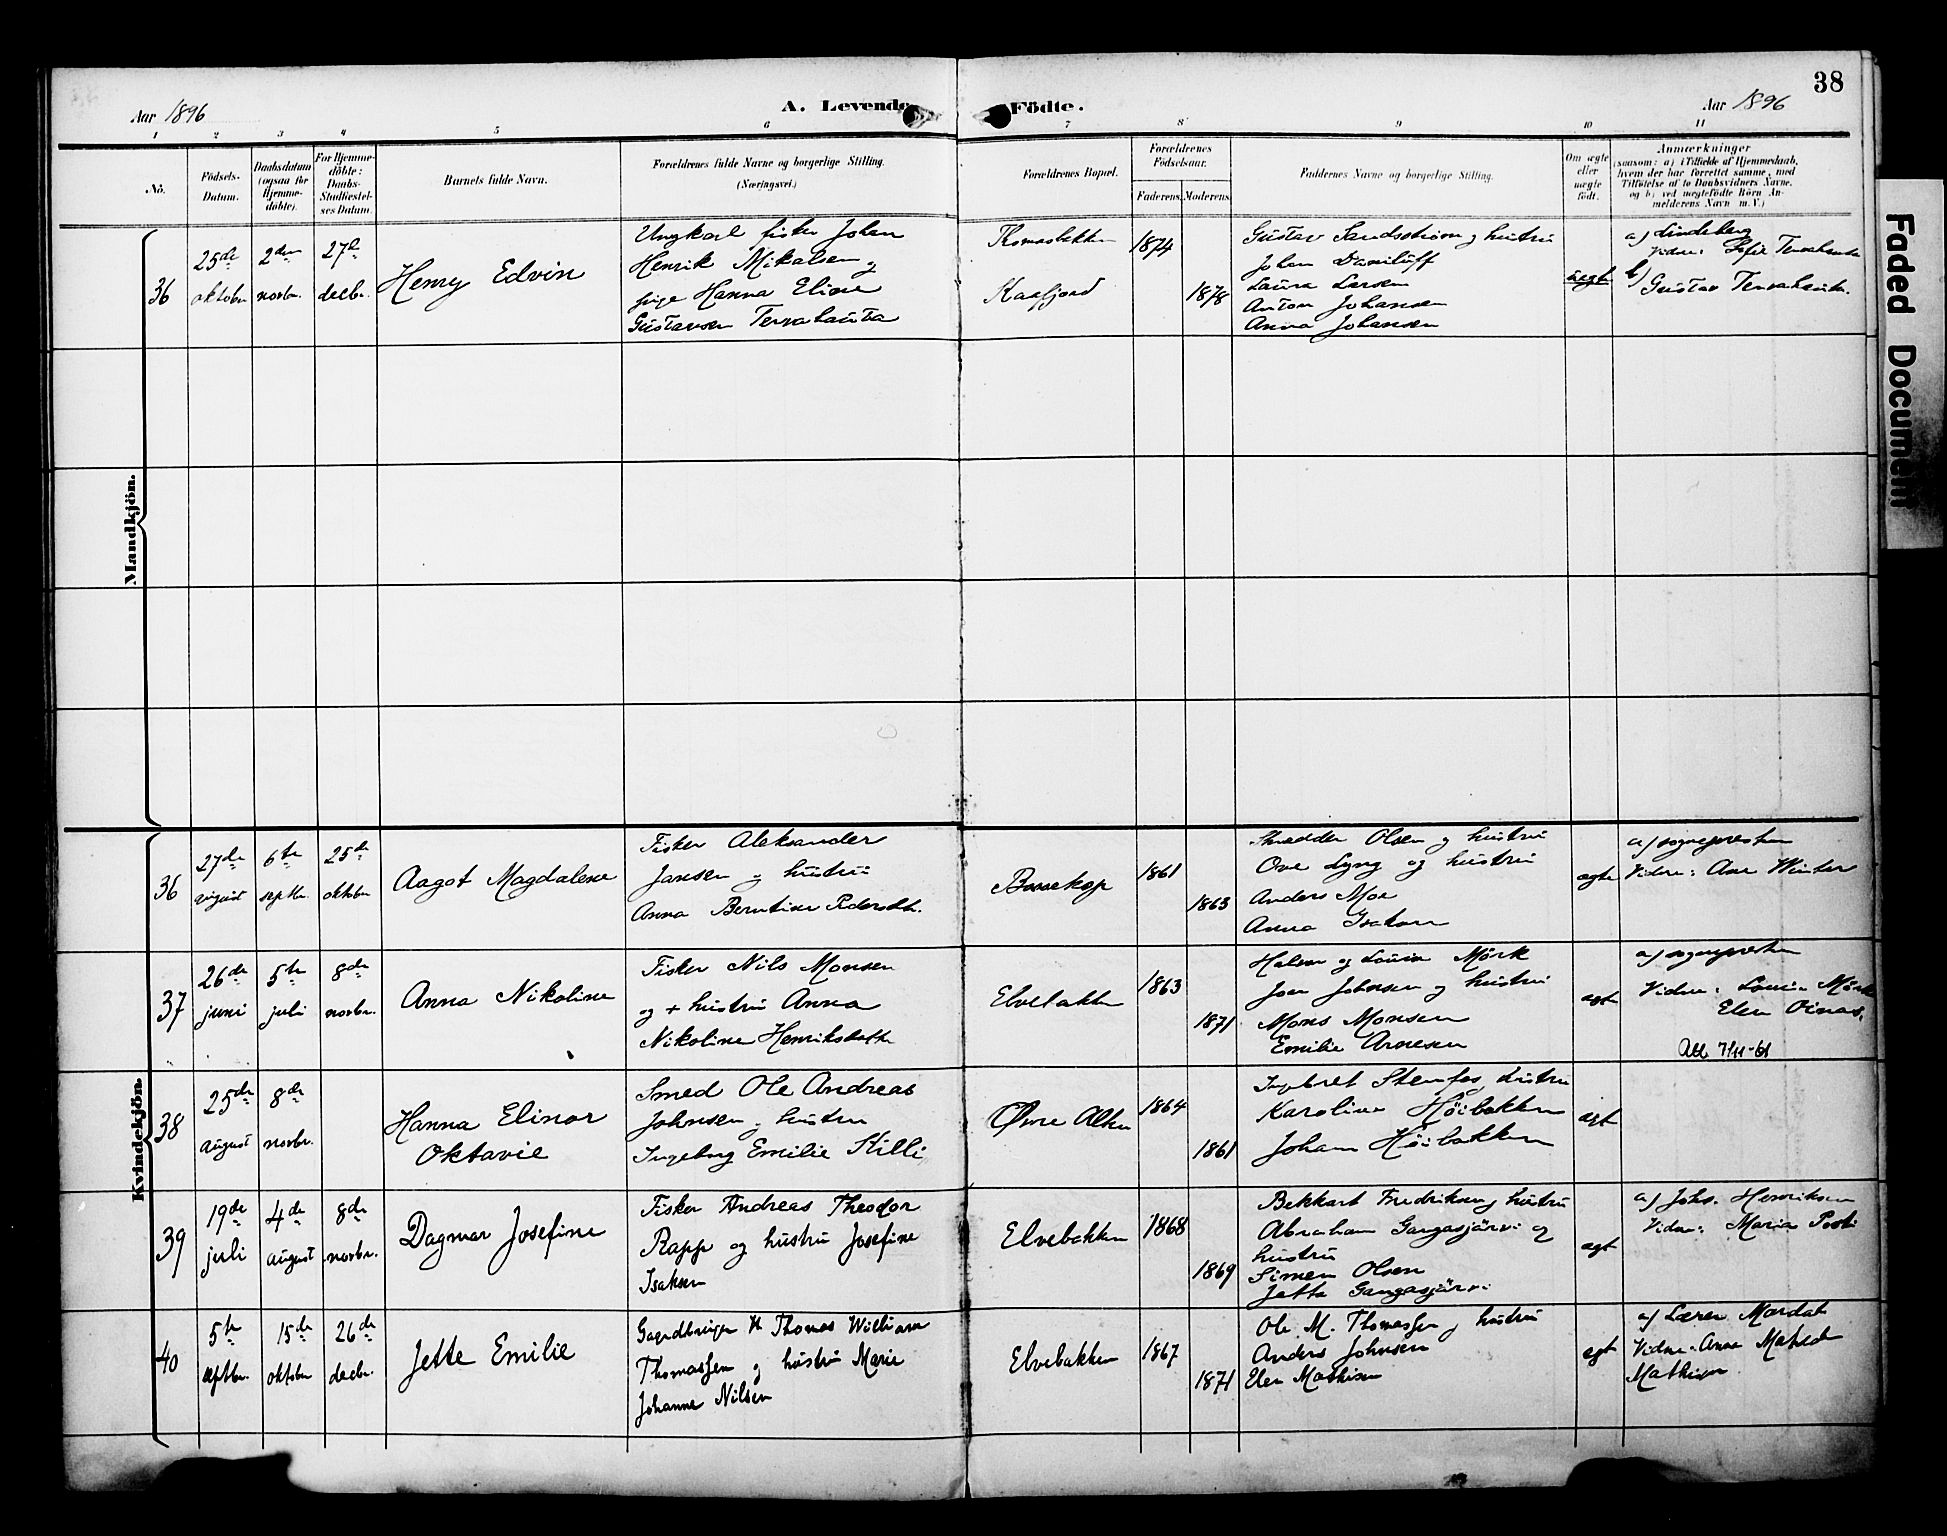 38
Aar 1896
A. Levende Födte.
Aar 1896
1 2 3 4 5 6 7 8 9 10 11
No.
Födsels-
Datum.
Daabsdatum
(ogsaa for
Hjemme-
döbte).
For Hjemme-
döbte:
Daabs-
Stadfæstel-
ses Datum.
Barnets fulde Navn.
Forældrenes fulde Navne og borgerlige Stilling.
(Næringsvei.)
Forældrenes Bopæl.
Forældrenes
Födselsaar.
Faderens.
Moderens.
Faddernes Navne og borgerlige Stilling.
Om ægte
eller
uægte
født.
Anmærkninger
(saasom: a) i Tilfælde af Hjemmedaab,
hvem der har forrettet samme, med
Tilföielse af to Daabsvidners Navne,
og b) ved uegtefödte Börn An-
melderens Navn m. V.)
Mandkjön.
36
25de
oktober
2den
novbr.
27de
decbr.
Henry Edvin
Ungkarl fisker Johan
Henrik Mikalsen og
pige Hanna Eline
Gustavsen Tervahauta
Thomasbakken
Kaafjord
1874
1878
Gustav Sandstrøm og hustru
Johan Daniluff
Laura Larsen
Anton Johansen
Anna Johansen
uegte
a) Lindeberg
Vidne: Sofie Tervahauta
b) Gustav Tervahauta.
Kvindekjön.
36
27de
august
6te
septbr.
25de
oktober
Aagot Magdalene
Fisker Aleksander
Jansen og hustru
Anna Berntine Pedersdtr.
Bossekop
1861
1863
Skrædder Olsen og hustru
Ove Lyng og hustru
Anders Moe
Anna Isaksen
egte
a) sognepresten
Vidne: Ane Winter
37
26de
juni
5te
juli
8de
novbr.
Anna Nikoline
Fisker Nils Monsen
og + hustru Anna
Nikoline Henriksdatter
Elvebakken
1863
1871
Halvor og Lovise Mørk
Joen Johnsen og hustru
Mons Monsen
Emilie Arnesen
egt
a) sognepresten
Vidne: Lovise Mørk
Elen Oinas.
Att 7/11-61
38
25de
august
8de
novbr.
Hanna Elinor
Oktavie
Smed Ole Andreas
Johnsen og hustru
Ingeborg Emilie Killi
Øvre Alten
1864
1861
Ingebret Stenfos, hustru
Karoline Høibakken
Johan Høibakken
egt
39
19de
juli
4de
august
8de
novbr.
Dagmar Josefine
Fisker Andreas Theodor
Rapp og hustru Josefine
Isaksen
Elvebakken
1868
1869
Bekkart Fredriksen og hustru
Abraham Gangasjärvi og
hustru
Simen Olsen
Jetta Gangasjärvi
egt
a) Johs. Henriksen
Vidne: Maria Posti
40
5te
septbr.
15de
oktober
26de
decbr.
Jette Emilie
Gaardbruger H Thomas William
Thomassen og hustru Marie
Johanne Nilsen
Elvebakken
1867
1871
Ole M. Thomassen og hustru
Anders Johnsen
Elen Mathisen
egt
a) Lærer Mordat
Vidne: Anne
Mathisen
Faded Document